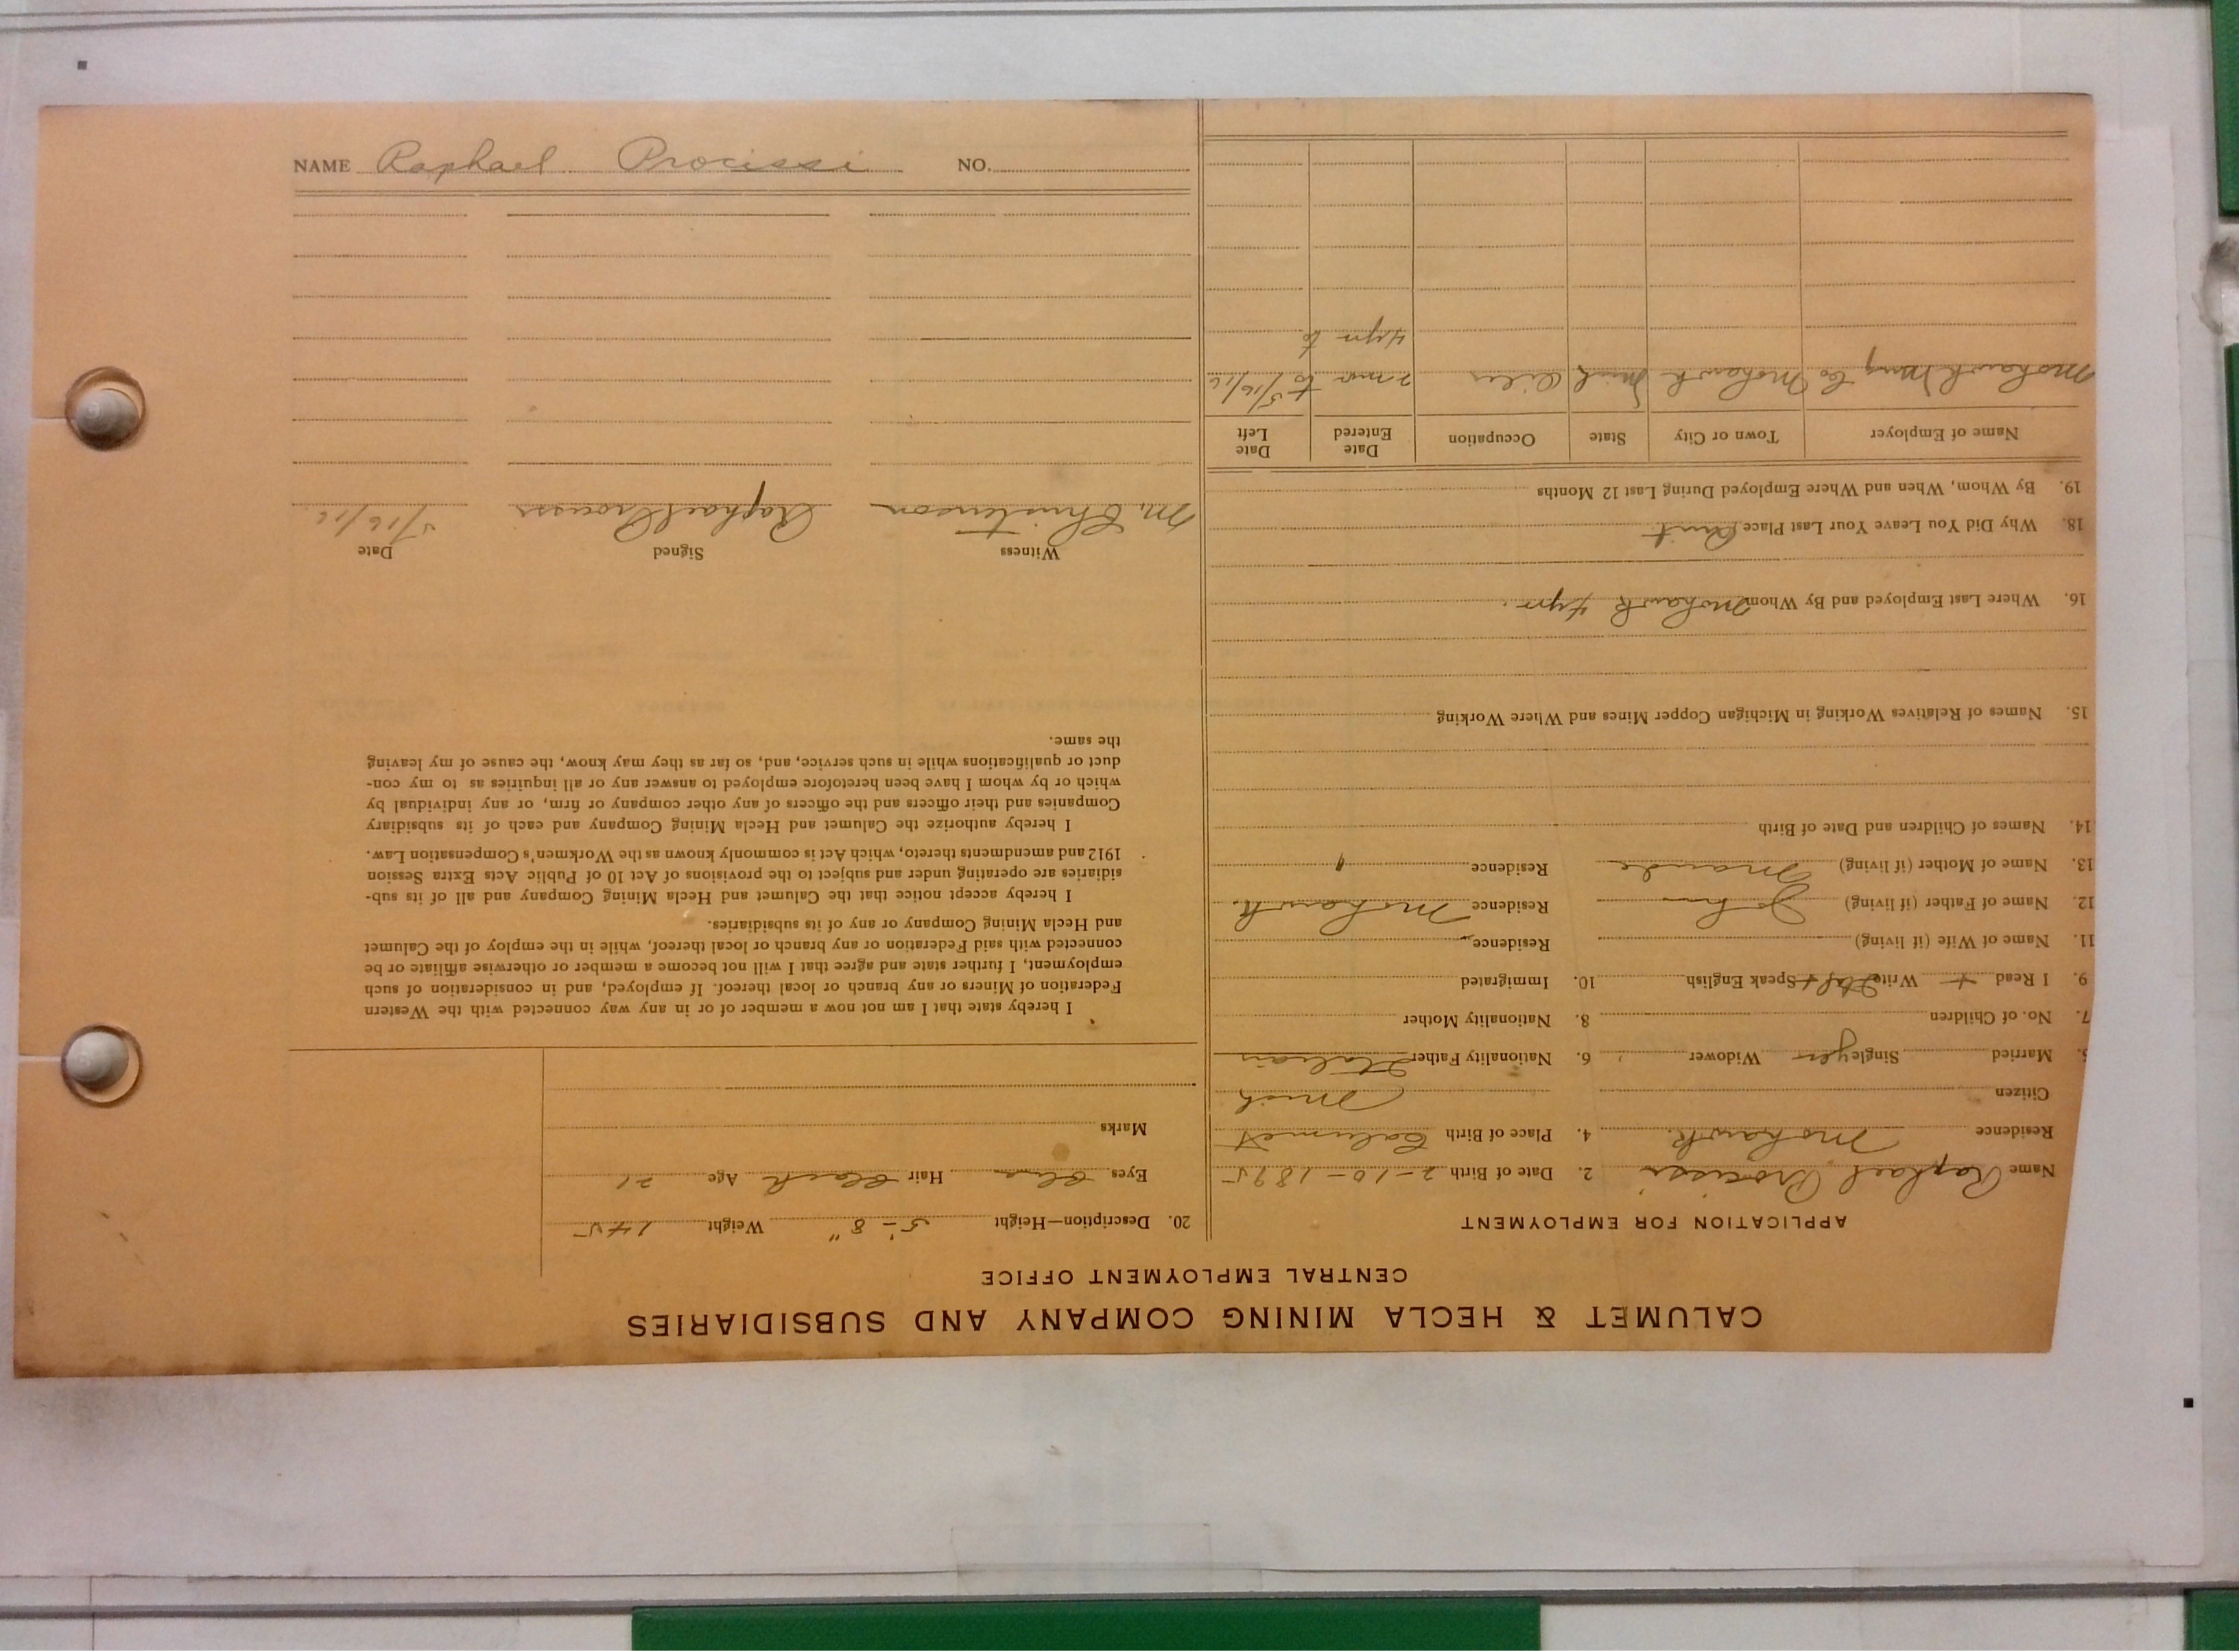 CALUMET & HECLA MINING COMPANY AND SUBSIDIARIES
CENTRAL EMPLOYMENT OFFICE
APPLICATION FOR EMPLOYMENT
Name Raphael Procissi 2. Date of Birth 2-10-1895
Residence Mohawk. 4. Place of Birth Calumet
Citizen Mich
5. Married Single yes Widower 6. Nationality Father Italian
7. No. of Children 8. Nationality Mother
9. I Read + Write Speak English 10. Immigrated
11. Name of Wife (if living) Residence
12. Name of Father (if living) John Residence Mohawk.
13. Name of Mother (if living) Residence "
14. Names of Children and Date of Birth
15. Names of Relatives Working in Michigan Copper Mines and Where Working
16. Where Last Employed and By Whom Mohawk 4 yrs.
18. Why Did You Leave Your Last Place Quit
19. By Whom, When and Where Employed During Last 12 Months
Name of Employer Town or City State Occupation Date Entered Date Left
Mohawk Mng Co Mohawk Mich 2 mos to 5/16/16
4 yrs to
20. Description—Height 5'-8" Weight 145
Eyes Hair Black Age 21
Marks
I hereby state that I am not now a member of or in any way connected with the Western
Federation of Miners or any branch or local thereof. If employed, and in consideration of such
employment, I further state and agree that I will not become a member or otherwise affiliate or be
connected with said Federation or any branch or local thereof, while in the employ of the Calumet
and Hecla Mining Company or any of its subsidiaries.
I hereby accept notice that the Calumet and Hecla Mining Company and all of its sub-
sidiaries are operating under and subject to the provisions of Act 10 of Public Acts Extra Session
1912 and amendments thereto, which Act is commonly known as the Workmen's Compensation Law.
I hereby authorize the Calumet and Hecla Mining Company and each of its subsidiary
Companies and their officers and the officers of any other company or firm, or any individual by
which or by whom I have been heretofore employed to answer any or all inquiries as to my con-
duct or qualifications while in such service, and, so far as they may know, the cause of my leaving
the same.
Witness Signed Date
M. Christenson Raphael Procissi 5/16/16
NAME Raphael Procissi NO.